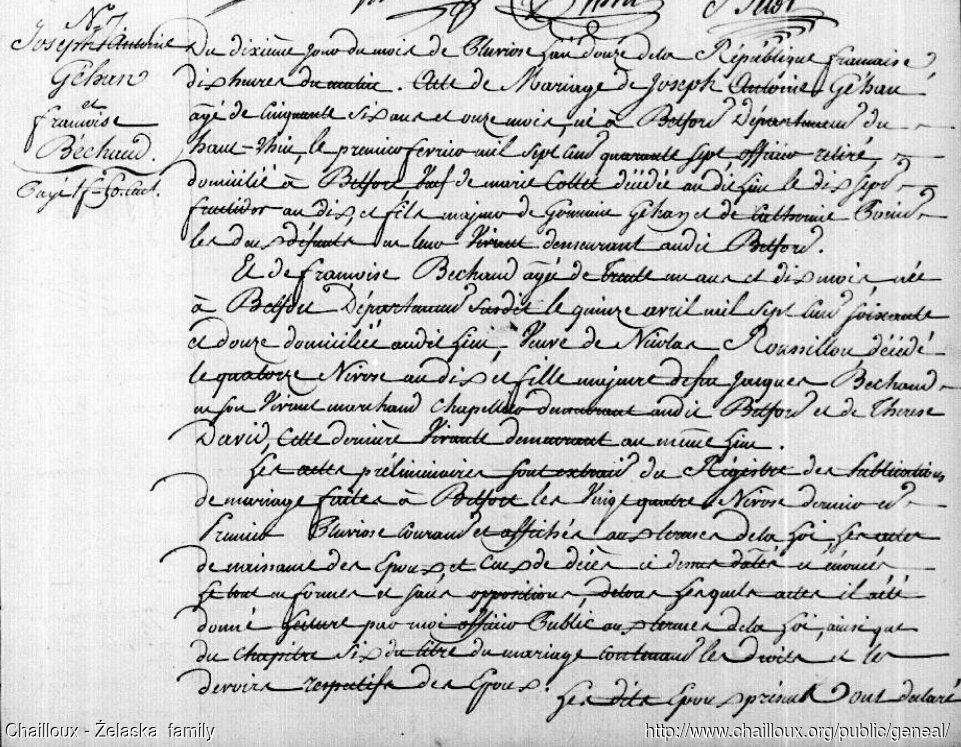 N.º 7.
Joseph Antoine
Géhan
et
françoise
Béchaud.
Payé
Du dixième jour du mois de Pluviose L'an douze de la République francaise
dix heures du matin. Acte de Mariage de Joseph Antoine Géhan
agé de Cinquante six ans et onze mois, né à Belfort Département du
haut-Rhin, le premier fevrier mil sept cent quarante sept officier retiré,
domicilié à Belfort Veuf de marie Collet décédée audit Lieu le dix sept
fructidor an dix et fils majeur de Germain Géhan et de Catherine
les deux défunts en leur Vivant demeurant audit Belfort.
Et de françoise Bechaud agée de trente un ans et dix mois née
à Belfort Département susdit le quinze avril mil sept cent soixante
et douze domiciliée audit Lieu Veuve de Nicolas Roussillon décédé
le quatorze Nivose an dix et fille majeure de feu Jacques Béchaud
en son Vivant marchand Chapellier demeurant audit Belfort et de Therese
David, Cette dernière Vivante demeurant au même Lieu.
Les actes préliminaires sont extraits du Régistre des Publications
de mariage faites à Belfort les Vingt quatre Nivose dernier et
Premier Pluviose courant et affichés aux termes de la Loi, Les actes
de naissance des Epoux et Ceux de décès ci dessus datés et énoncés
Le tout en formes et sans oppositions, de tous Lesquels actes il a été
donné Lecture par moi officier Public aux termes de la Loi, ainsi que
du Chapitre six du titre du mariage contenant les droits et les
devoirs respectifs des Epoux.
Les dits Epoux présents Ont déclaré
Chailloux - Żelaska family
http://www.chailloux.org/public/geneal/